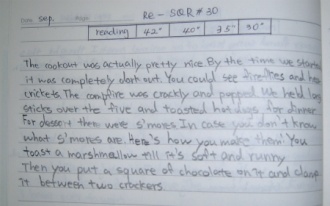 sep. Re - SQR # 30.
reading 42" 40" 35" 30"
The cookout was actually pretty nice By the time we started
it was completely dark out. You could see fireflies and hear
crickets. The campfire was crackly and popped We held long
sticks over the fire and toasted hot dogs for dinner
For dessert there were s'mores In case you don't know
what s'mores are. Here's how you make them: You
toast a marshmallow till it's soft and runny
Then you put a square of chocolate on it and clamp
It between two crackers